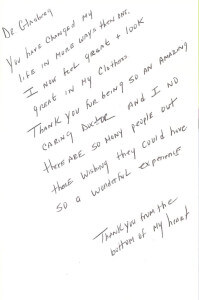 Dr Glasberg
You have changed my
life in more ways then one.
I now feel great + look
great in my clothes.
Thank you for being so an amazing
caring doctor and I no
there are so many people out
there wishing they could have
so a wonderful experience
Thank you from the
bottom of my heart